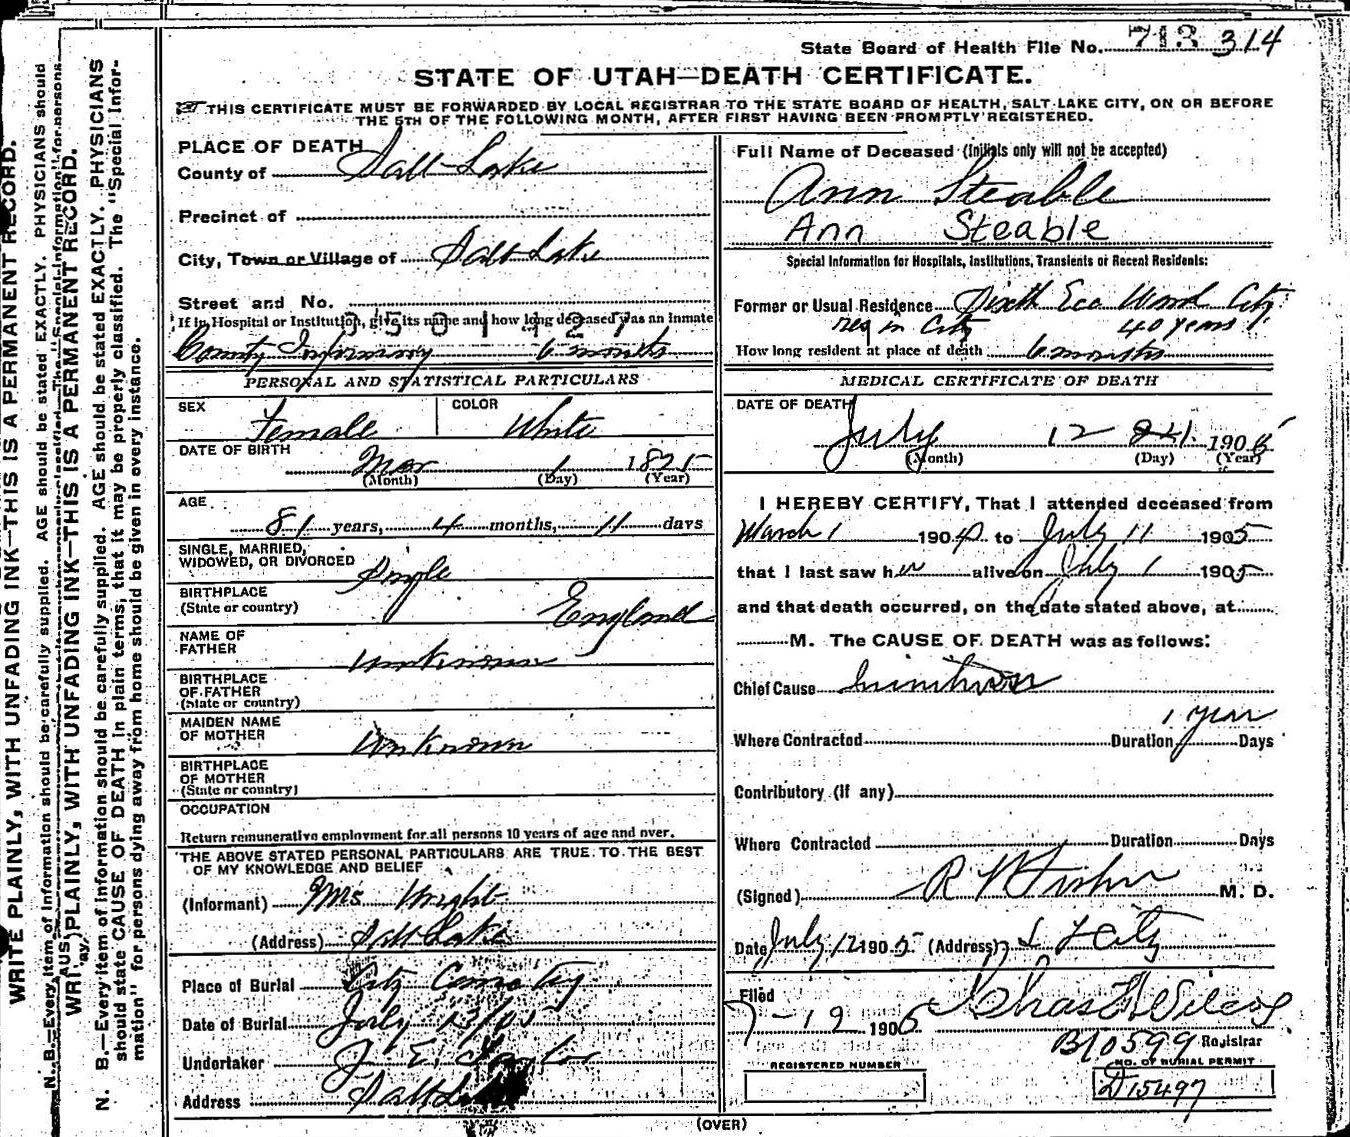 State Board of Health File No. 713 314
STATE OF UTAH—DEATH CERTIFICATE.
THIS CERTIFICATE MUST BE FORWARDED BY LOCAL REGISTRAR TO THE STATE BOARD OF HEALTH, SALT LAKE CITY, ON OR BEFORE
THE 5TH OF THE FOLLOWING MONTH, AFTER FIRST HAVING BEEN PROMPTLY REGISTERED.
PLACE OF DEATH
County of Salt Lake
Precinct of
City, Town or Village of Salt Lake
Street and No.
If in Hospital or Institution, give its name and how long deceased was an inmate
0501127
County Infirmary 6 months
PERSONAL AND STATISTICAL PARTICULARS
SEX Female COLOR White
DATE OF BIRTH
Mar 1 1825
(Month) (Day) (Year)
AGE
81 years, 4 months, 11 days
SINGLE, MARRIED,
WIDOWED, OR DIVORCED Single
BIRTHPLACE
(State or country) England
NAME OF
FATHER unknown
BIRTHPLACE
OF FATHER
(State or country)
MAIDEN NAME
OF MOTHER Unknown
BIRTHPLACE
OF MOTHER
(State or country)
OCCUPATION
Return remunerative employment for all persons 10 years of age and over.
THE ABOVE STATED PERSONAL PARTICULARS ARE TRUE TO THE BEST
OF MY KNOWLEDGE AND BELIEF
(Informant) Mrs. Wright
(Address) Salt Lake
Place of Burial City Cemetery
Date of Burial July 13/05
Undertaker J E Taylor
Address Salt Lake
Full Name of Deceased (Initials only will not be accepted)
Ann Steable
Ann Steable
Special Information for Hospitals, Institutions, Transients or Recent Residents:
Former or Usual Residence Sixth Ecc Ward City
res in City 40 years
How long resident at place of death 6 months
MEDICAL CERTIFICATE OF DEATH
DATE OF DEATH
July 12 190
(Month) (Day) (Year)
I HEREBY CERTIFY, That I attended deceased from
March 1 190 to July 11 1905
that I last saw her alive on July 1 1905
and that death occurred, on the date stated above, at
M. The CAUSE OF DEATH was as follows:
Chief Cause
1 year
Where Contracted Duration Days
Contributory (If any)
Where Contracted Duration Days
(Signed) R W Fisher M. D.
Date July 12 1905 (Address) S L City
Filed
7-12 1905 Chas L Wilcox
B10599 Registrar
REGISTERED NUMBER
NO. OF BURIAL PERMIT
D15497
(OVER)
WRITE PLAINLY, WITH UNFADING INK—THIS IS A PERMANENT RECORD.
N. B.—Every item of information should be carefully supplied. AGE should be stated EXACTLY. PHYSICIANS should
WRITE PLAINLY, WITH UNFADING INK—THIS IS A PERMANENT RECORD.
N. B.—Every item of information should be carefully supplied. AGE should be stated EXACTLY. PHYSICIANS
should state CAUSE OF DEATH in plain terms, that it may be properly classified. The "Special Infor-
mation" for persons dying away from home should be given in every instance.